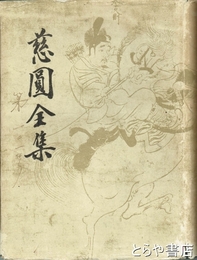 慈圓全集
とらや書店